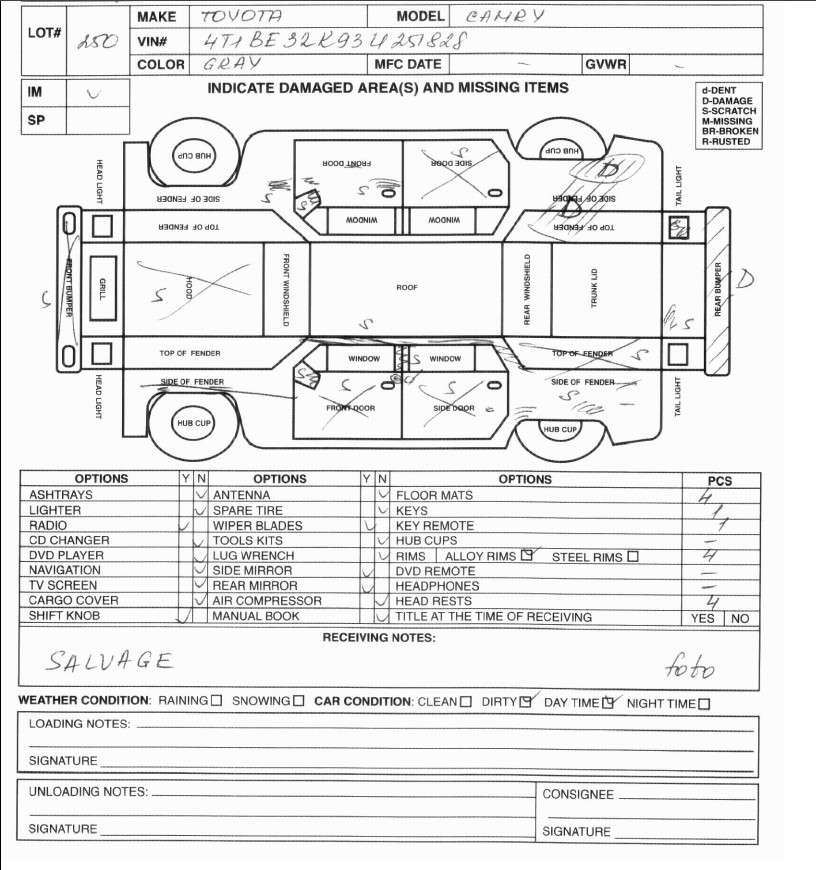 LOT# 250
MAKE TOYOTA MODEL CAMRY
VIN# 4T1BE32K93U251828
COLOR GRAY MFC DATE – GVWR –
IM ✓
SP
INDICATE DAMAGED AREA(S) AND MISSING ITEMS
d-DENT
D-DAMAGE
S-SCRATCH
M-MISSING
BR-BROKEN
R-RUSTED
HUB CUP HUB CUP
HEAD LIGHT SIDE OF FENDER FRONT DOOR S SIDE DOOR S SIDE OF FENDER D TAIL LIGHT
S S S D
TOP OF FENDER WINDOW WINDOW TOP OF FENDER
S FRONT BUMPER GRILL HOOD S FRONT WINDSHIELD ROOF REAR WINDSHIELD TRUNK LID REAR BUMPER D
S S
TOP OF FENDER WINDOW WINDOW S TOP OF FENDER S
HEAD LIGHT SIDE OF FENDER S FRONT DOOR S SIDE DOOR S SIDE OF FENDER S TAIL LIGHT
HUB CUP HUB CUP
OPTIONS Y N OPTIONS Y N OPTIONS PCS
ASHTRAYS ✓ ANTENNA ✓ FLOOR MATS 4
LIGHTER ✓ SPARE TIRE ✓ KEYS 1
RADIO ✓ WIPER BLADES ✓ KEY REMOTE 1
CD CHANGER ✓ TOOLS KITS ✓ HUB CUPS –
DVD PLAYER ✓ LUG WRENCH ✓ RIMS ALLOY RIMS ☑ STEEL RIMS ☐ 4
NAVIGATION ✓ SIDE MIRROR ✓ DVD REMOTE –
TV SCREEN ✓ REAR MIRROR ✓ HEADPHONES –
CARGO COVER ✓ AIR COMPRESSOR ✓ HEAD RESTS 4
SHIFT KNOB ✓ MANUAL BOOK ✓ TITLE AT THE TIME OF RECEIVING YES NO
RECEIVING NOTES:
SALVAGE foto
WEATHER CONDITION: RAINING ☐ SNOWING ☐ CAR CONDITION: CLEAN ☐ DIRTY ☑ DAY TIME ☑ NIGHT TIME ☐
LOADING NOTES:
SIGNATURE
UNLOADING NOTES: CONSIGNEE
SIGNATURE SIGNATURE